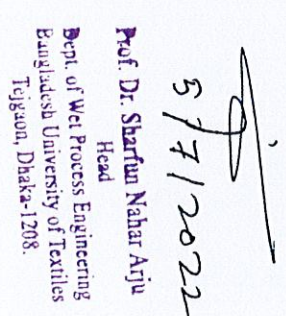 5/7/2022
Prof. Dr. Sharfun Nahar Arju
Head
Dept. of Wet Process Engineering
Bangladesh University of Textiles
Tejgaon, Dhaka-1208.